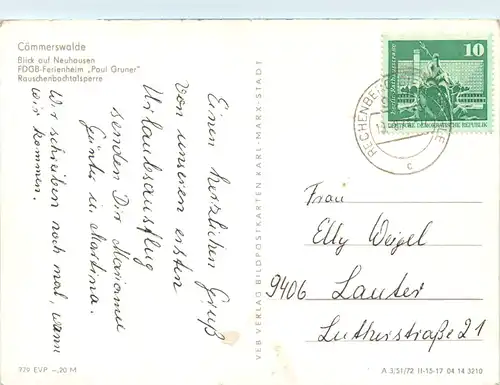 Cämmerswalde
Blick auf Neuhausen
FDGB-Ferienheim „Paul Gruner"
Rauschenbachtalsperre
Einen herzlichen Gruß
von unserem ersten
Urlaubsausflug
senden Dir Marianne
Günter u. Martina.
Wir schreiben noch mal, wann
wir kommen.
VEB VERLAG BILDPOSTKARTEN KARL-MARX-STADT
10
DEUTSCHE DEMOKRATISCHE REPUBLIK
RECHENBERG
c
Frau
Elly Weigel
9406 Lauter
Lutherstraße 21
729 EVP –,20 M
A 3/51/72 II-15-17 04 14 3210